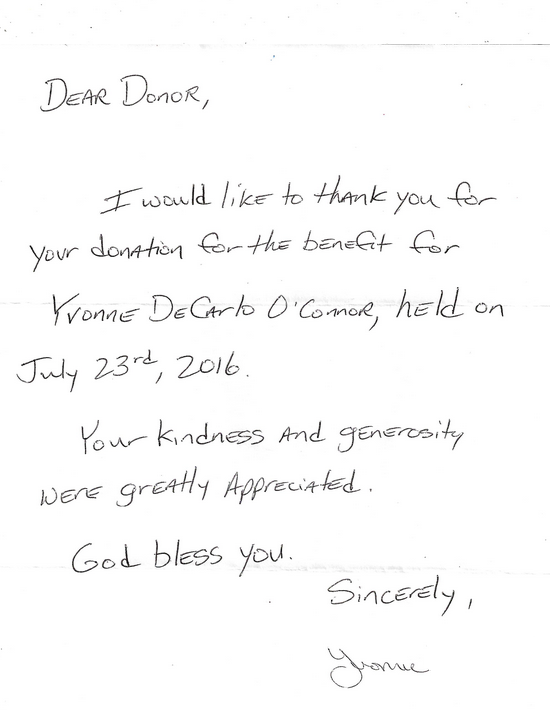 Dear Donor,
I would like to thank you for
your donation for the benefit for
Yvonne DeCarlo O'Connor, held on
July 23rd, 2016.
Your kindness and generosity
were greatly appreciated.
God bless you.
Sincerely,
Yvonne